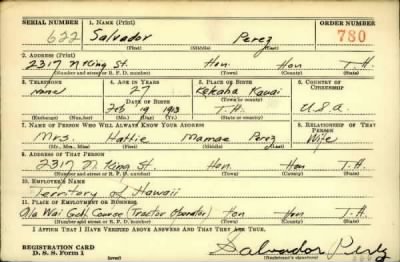 SERIAL NUMBER 1. NAME (Print) ORDER NUMBER
622 Salvador Perez 780
(First) (Middle) (Last)
2. ADDRESS (Print)
2317 N King St. Hon. Hon T.H.
(Number and street or R. F. D. number) (Town) (County) (State)
3. TELEPHONE 4. AGE IN YEARS 5. PLACE OF BIRTH 6. COUNTRY OF CITIZENSHIP
None 27 Kekaha Kauai
DATE OF BIRTH (Town or county)
Feb 19 1913 T.H. U.S.A.
(Exchange) (No.) (Mo.) (Day) (Yr.) (State or country)
7. NAME OF PERSON WHO WILL ALWAYS KNOW YOUR ADDRESS 8. RELATIONSHIP OF THAT PERSON
Mrs. Hattie Mamae Perez Wife
(Mr., Mrs., Miss) (First) (Middle) (Last)
9. ADDRESS OF THAT PERSON
2317 N. King St. Hon Hon. T.H.
(Number and street or R. F. D. number) (Town) (County) (State)
10. EMPLOYER'S NAME
Territory of Hawaii
11. PLACE OF EMPLOYMENT OR BUSINESS
Ala Wai Golf Course (Tractor Operator) Hon Hon T.H.
(Number and street or R. F. D. number) (Town) (County) (State)
I AFFIRM THAT I HAVE VERIFIED ABOVE ANSWERS AND THAT THEY ARE TRUE.
REGISTRATION CARD
D. S. S. Form 1 Salvador Perez
(Registrant's signature)